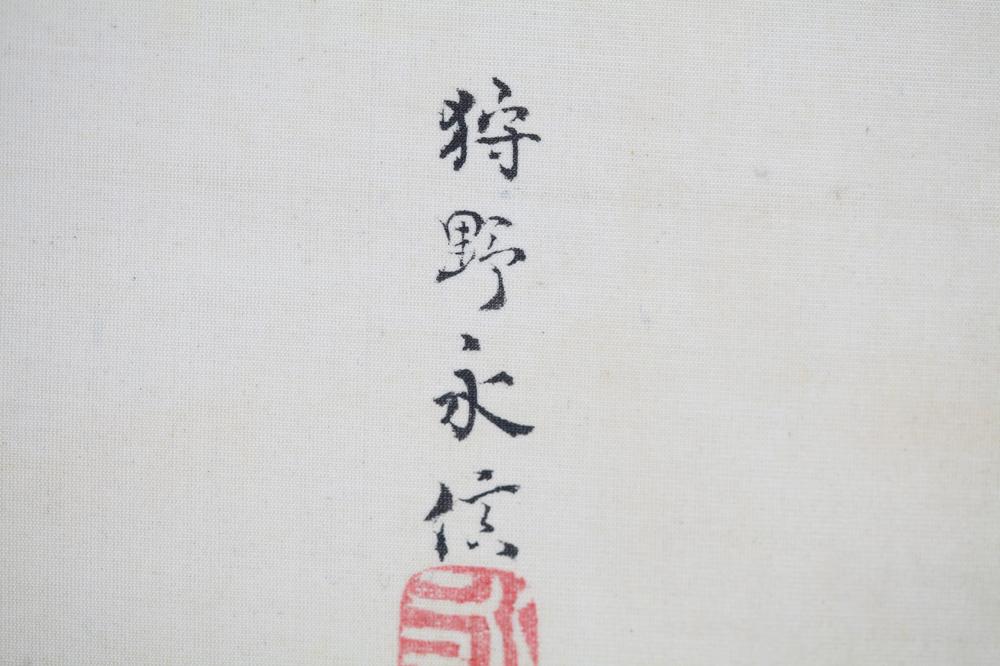 狩野永信